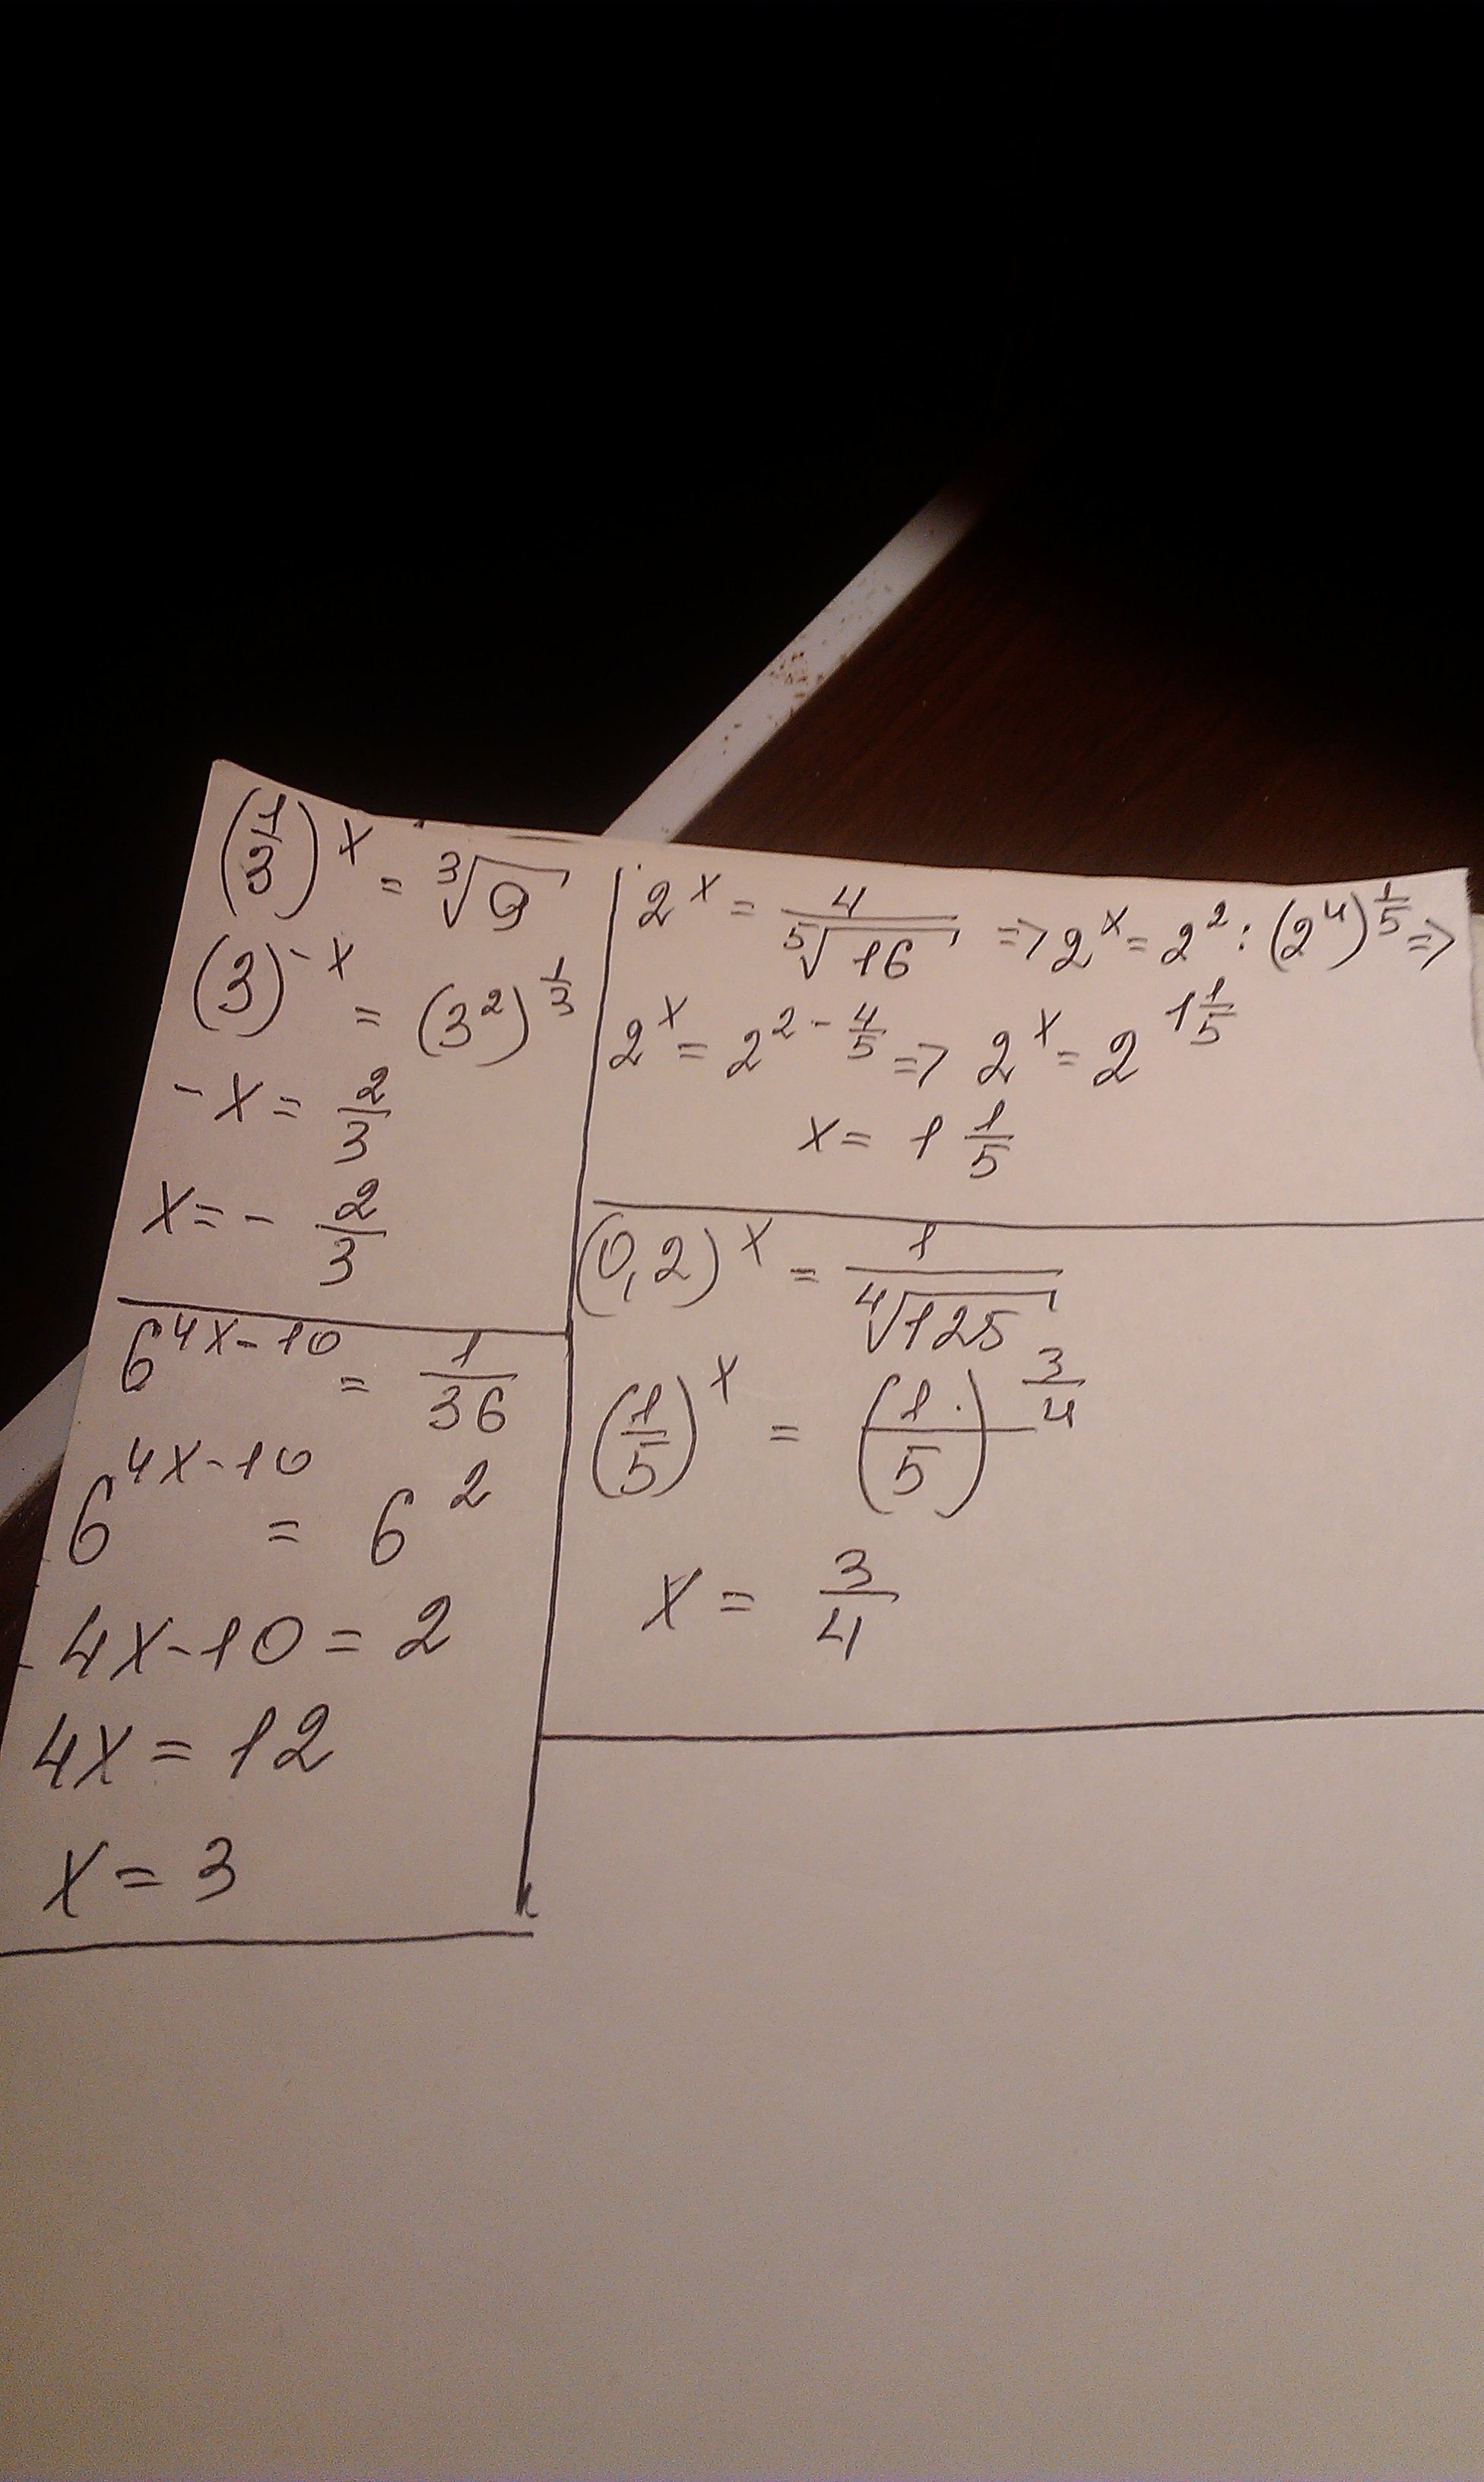 (1/3)^x = ∛9
(3)^-x = (3²)^1/3
-x = 2/3
x = - 2/3
6^4x-10 = 1/36
6^4x-10 = 6²
4x-10 = 2
4x = 12
x = 3
2^x = 4/⁵√16 => 2^x = 2² : (2⁴)^1/5 =>
2^x = 2^2-4/5 => 2^x = 2^1 1/5
x = 1 1/5
(0,2)^x = 1/⁴√125
(1/5)^x = (1/5)^3/4
x = 3/4